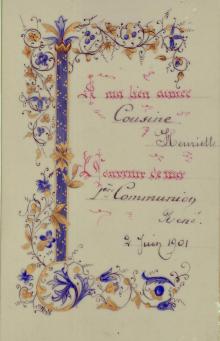 A ma bien aimée
Cousine
Henriette
Souvenir de ma
1ère Communion
René.
2 Juin 1901